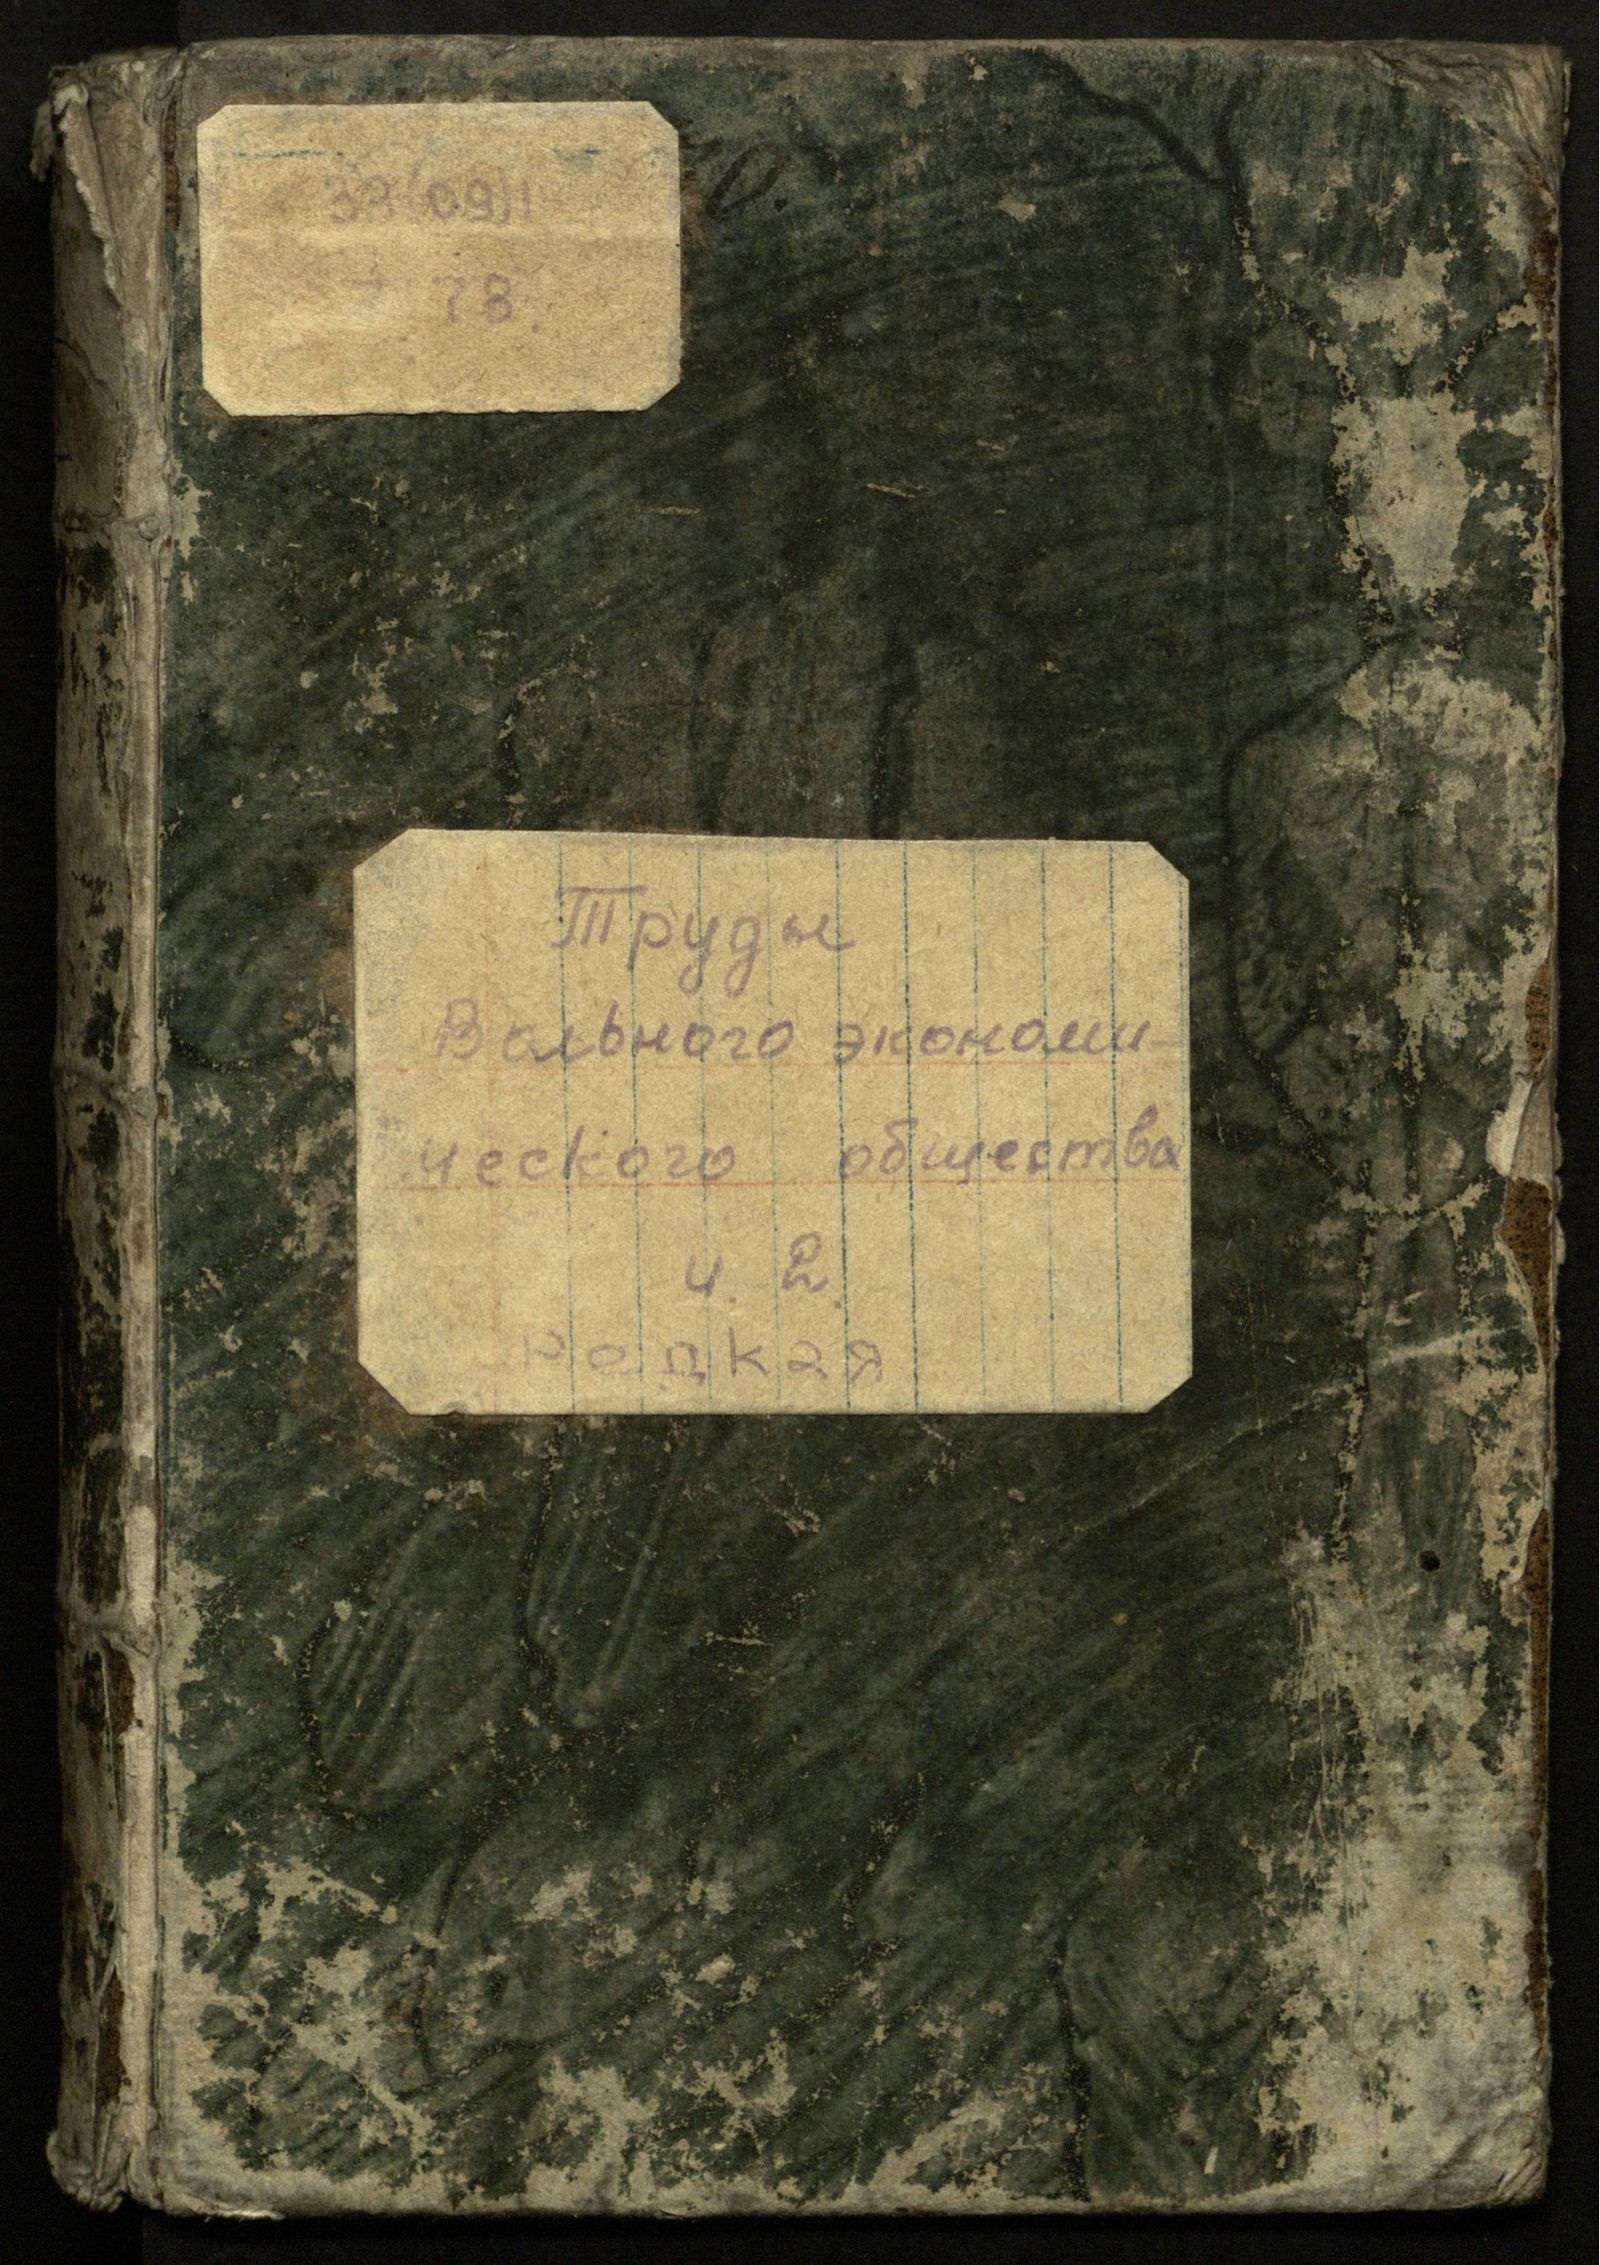 33(09)1
Т 78.
Труды
Вольного экономи-
ческого общества
ч. 2.
редкая